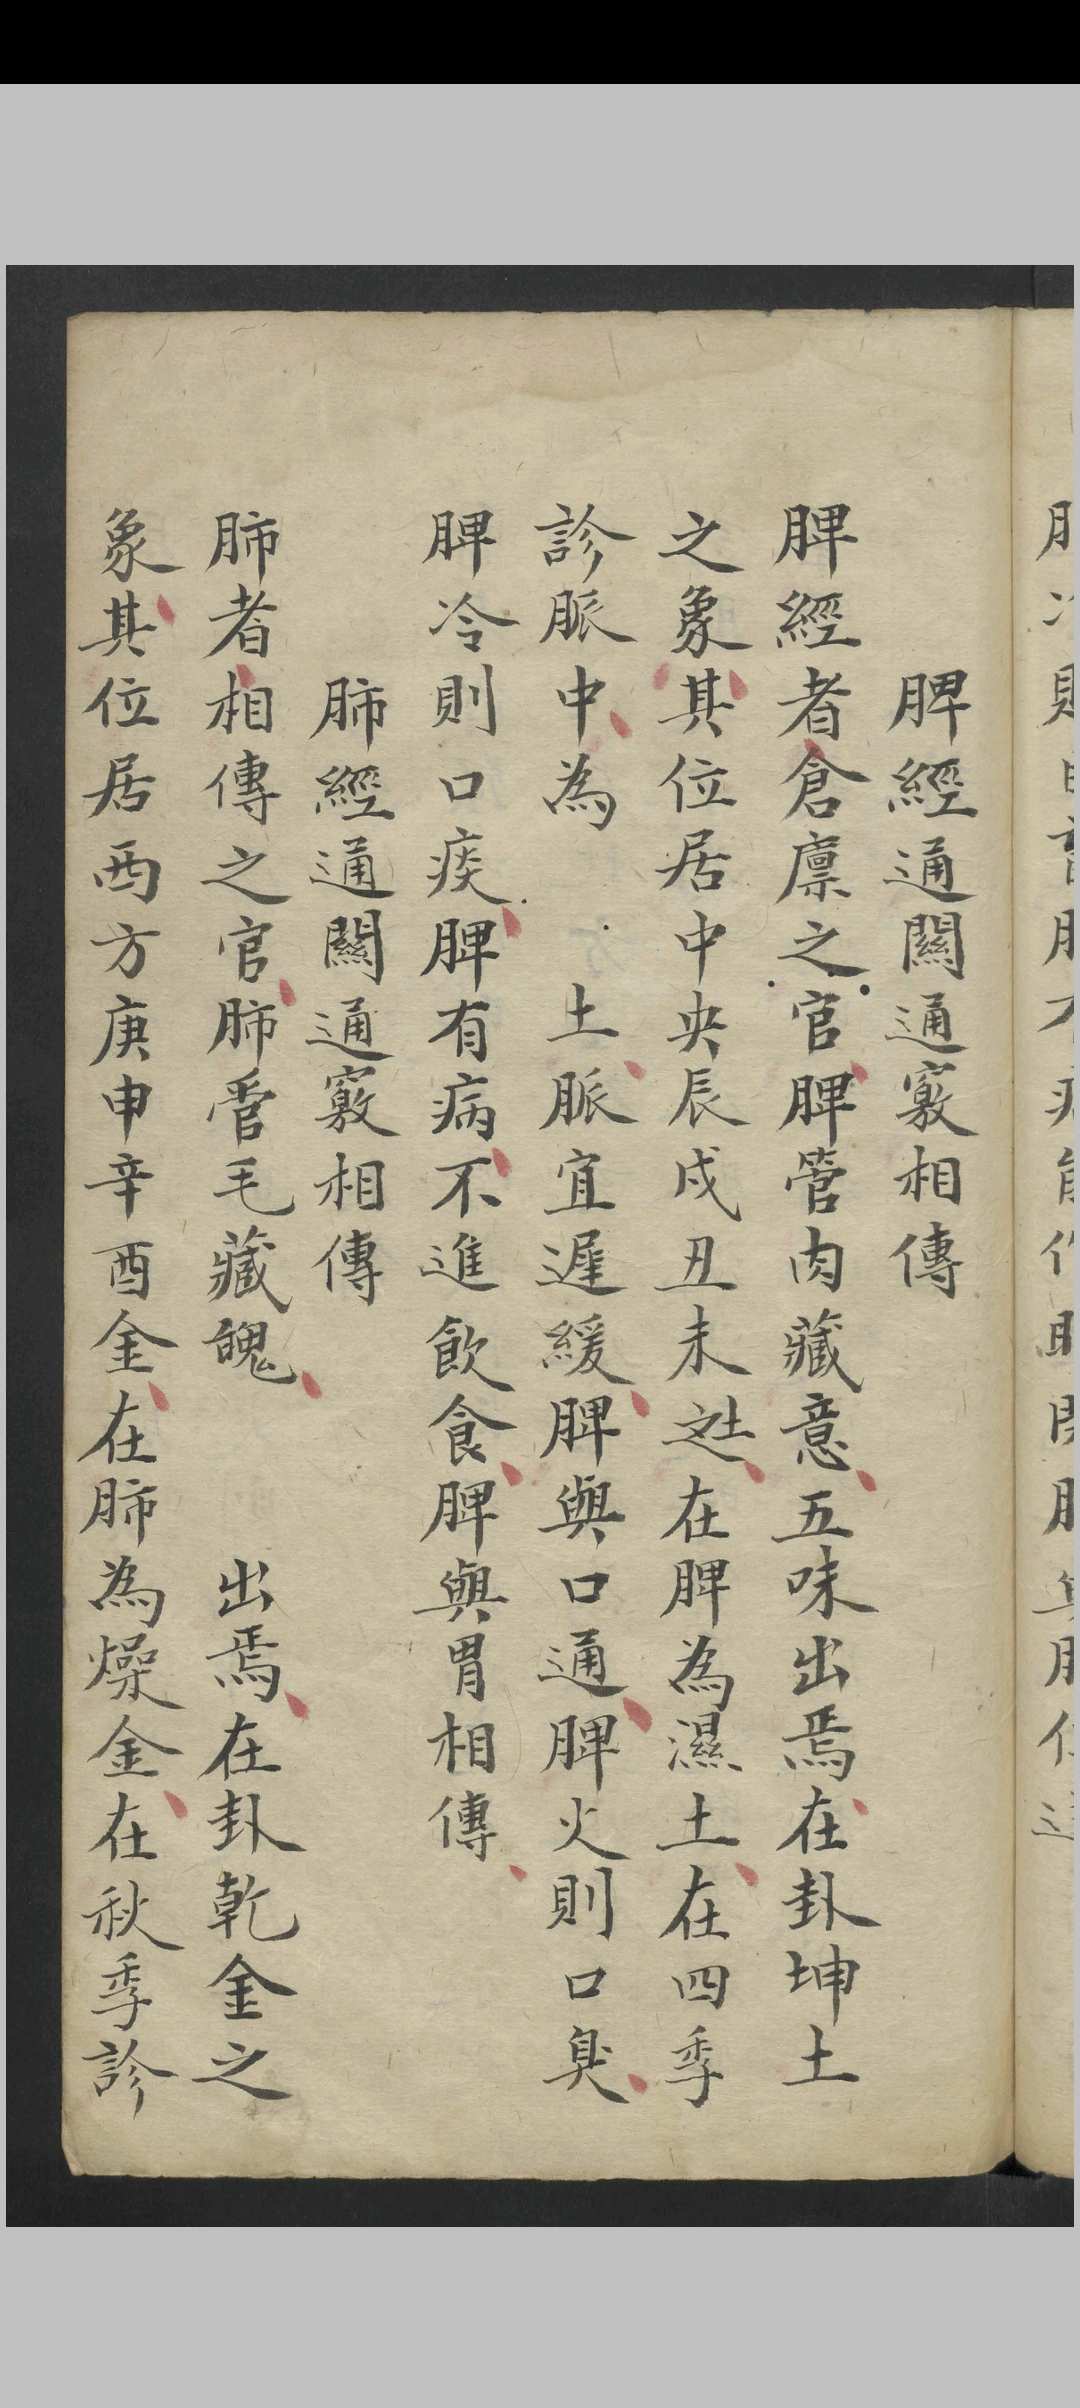 脾經通關通竅相傳
脾經者倉廪之官脾管肉藏意五味出焉在卦坤土
之象其位居中央辰戍丑未之土在脾為濕土在四季
診脈中為 土脈宜遲緩脾與口通脾火則口臭
脾冷則口痰脾有病不進飲食脾與胃相傳
肺經通關通竅相傳
肺者相傳之官肺管毛藏魄 出焉在卦乾金之
象其位居西方庚申辛酉金在肺為燥金在秋季診